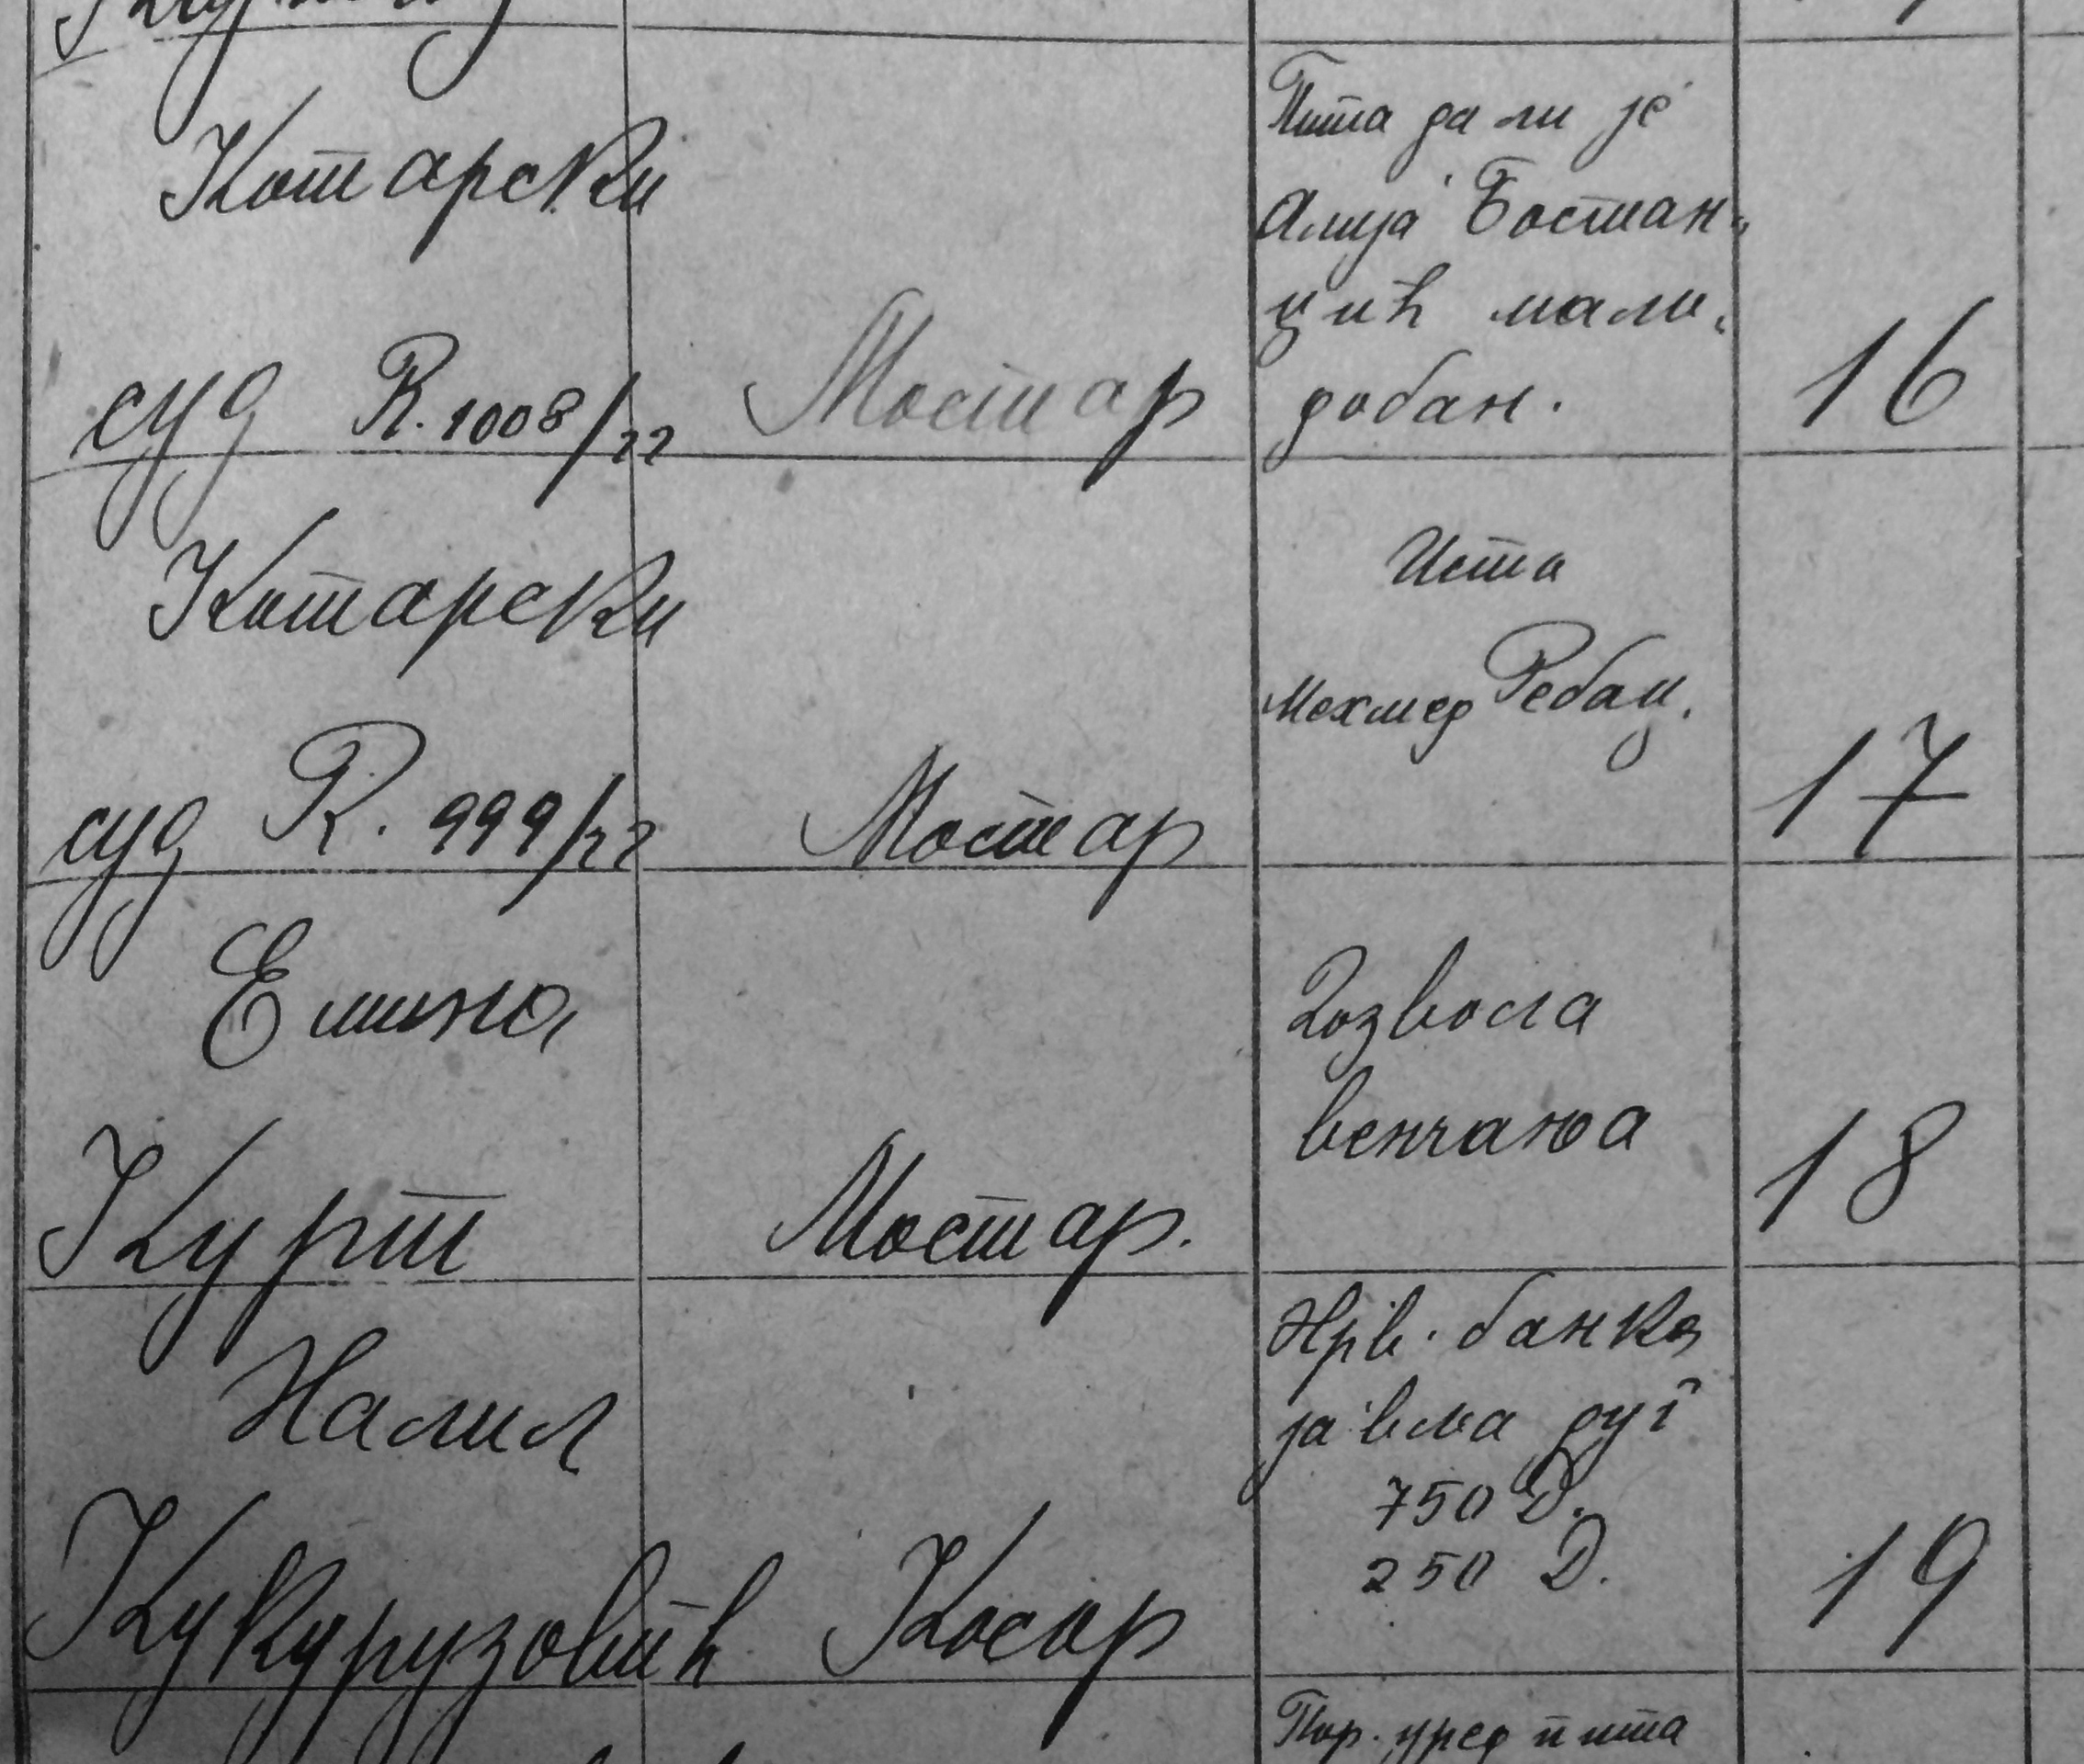 Котарски
суд R. 1008/22
Мостар
Пита да ли је
Алија Бостан„
џић мало„
добан.
16
Котарски
суд R. 999/22
Мостар
Иста
Мехмед Ребац.
17
Емина
Курт
Мостар.
Дозвола
венчања
18
Халил
Кукурузовић
Косор
Хрв. банка
јавља дуг
750 D.
250 D.
19
Пор. уред пита